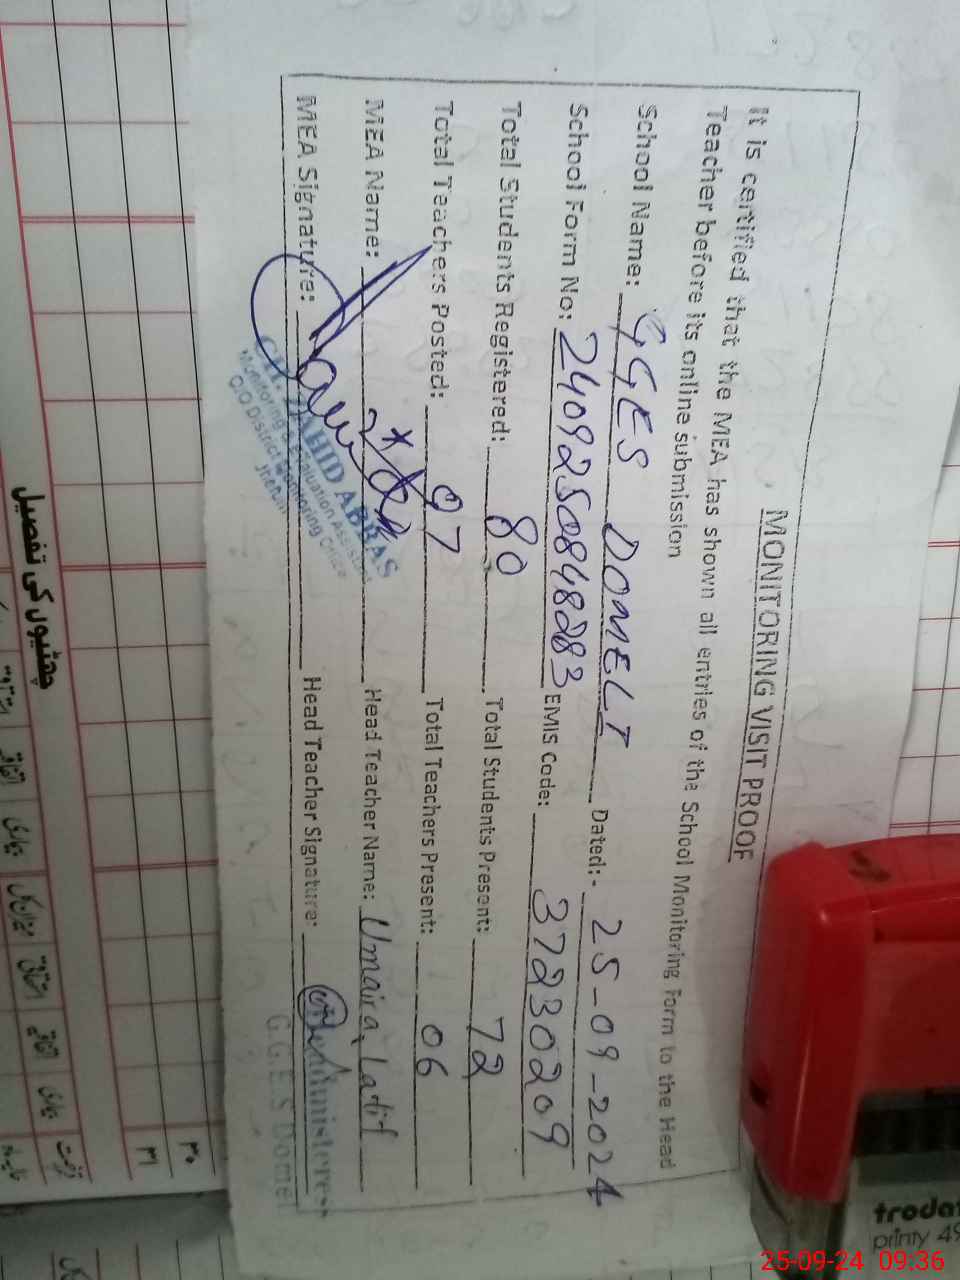 MONITORING VISIT PROOF
It is certified that the MEA has shown all entries of the School Monitoring Form to the Head
Teacher before its online submission
School Name: GGES DOMELI Dated:- 25-09-2024
School Form No: 2409250848283 EMIS Code: 37230209
Total Students Registered: 80 Total Students Present: 72
Total Teachers Posted: 07 Total Teachers Present: 06
MEA Name: Head Teacher Name: Umaira Latif
MEA Signature: Head Teacher Signature:
CH. ZAHID ABBAS
Monitoring & Evaluation Assistant
O/O District Monitoring Office
Jhelum
Headministress
G.G.E.S Domeli
چھٹیوں کی تفصیل
۳۰
۳۱
trodat
printy 49
25-09-24 09:36